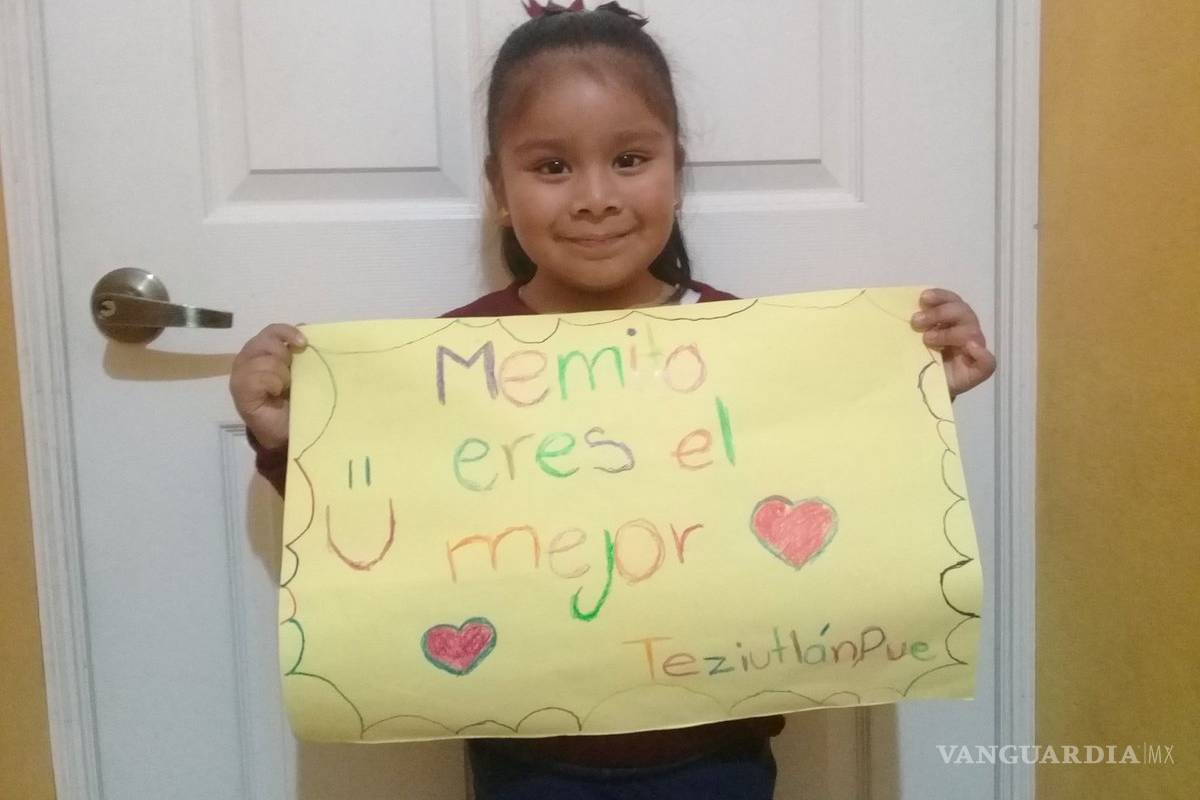 Memito
eres el
mejor
Teziutlán, Pue
VANGUARDIA|MX